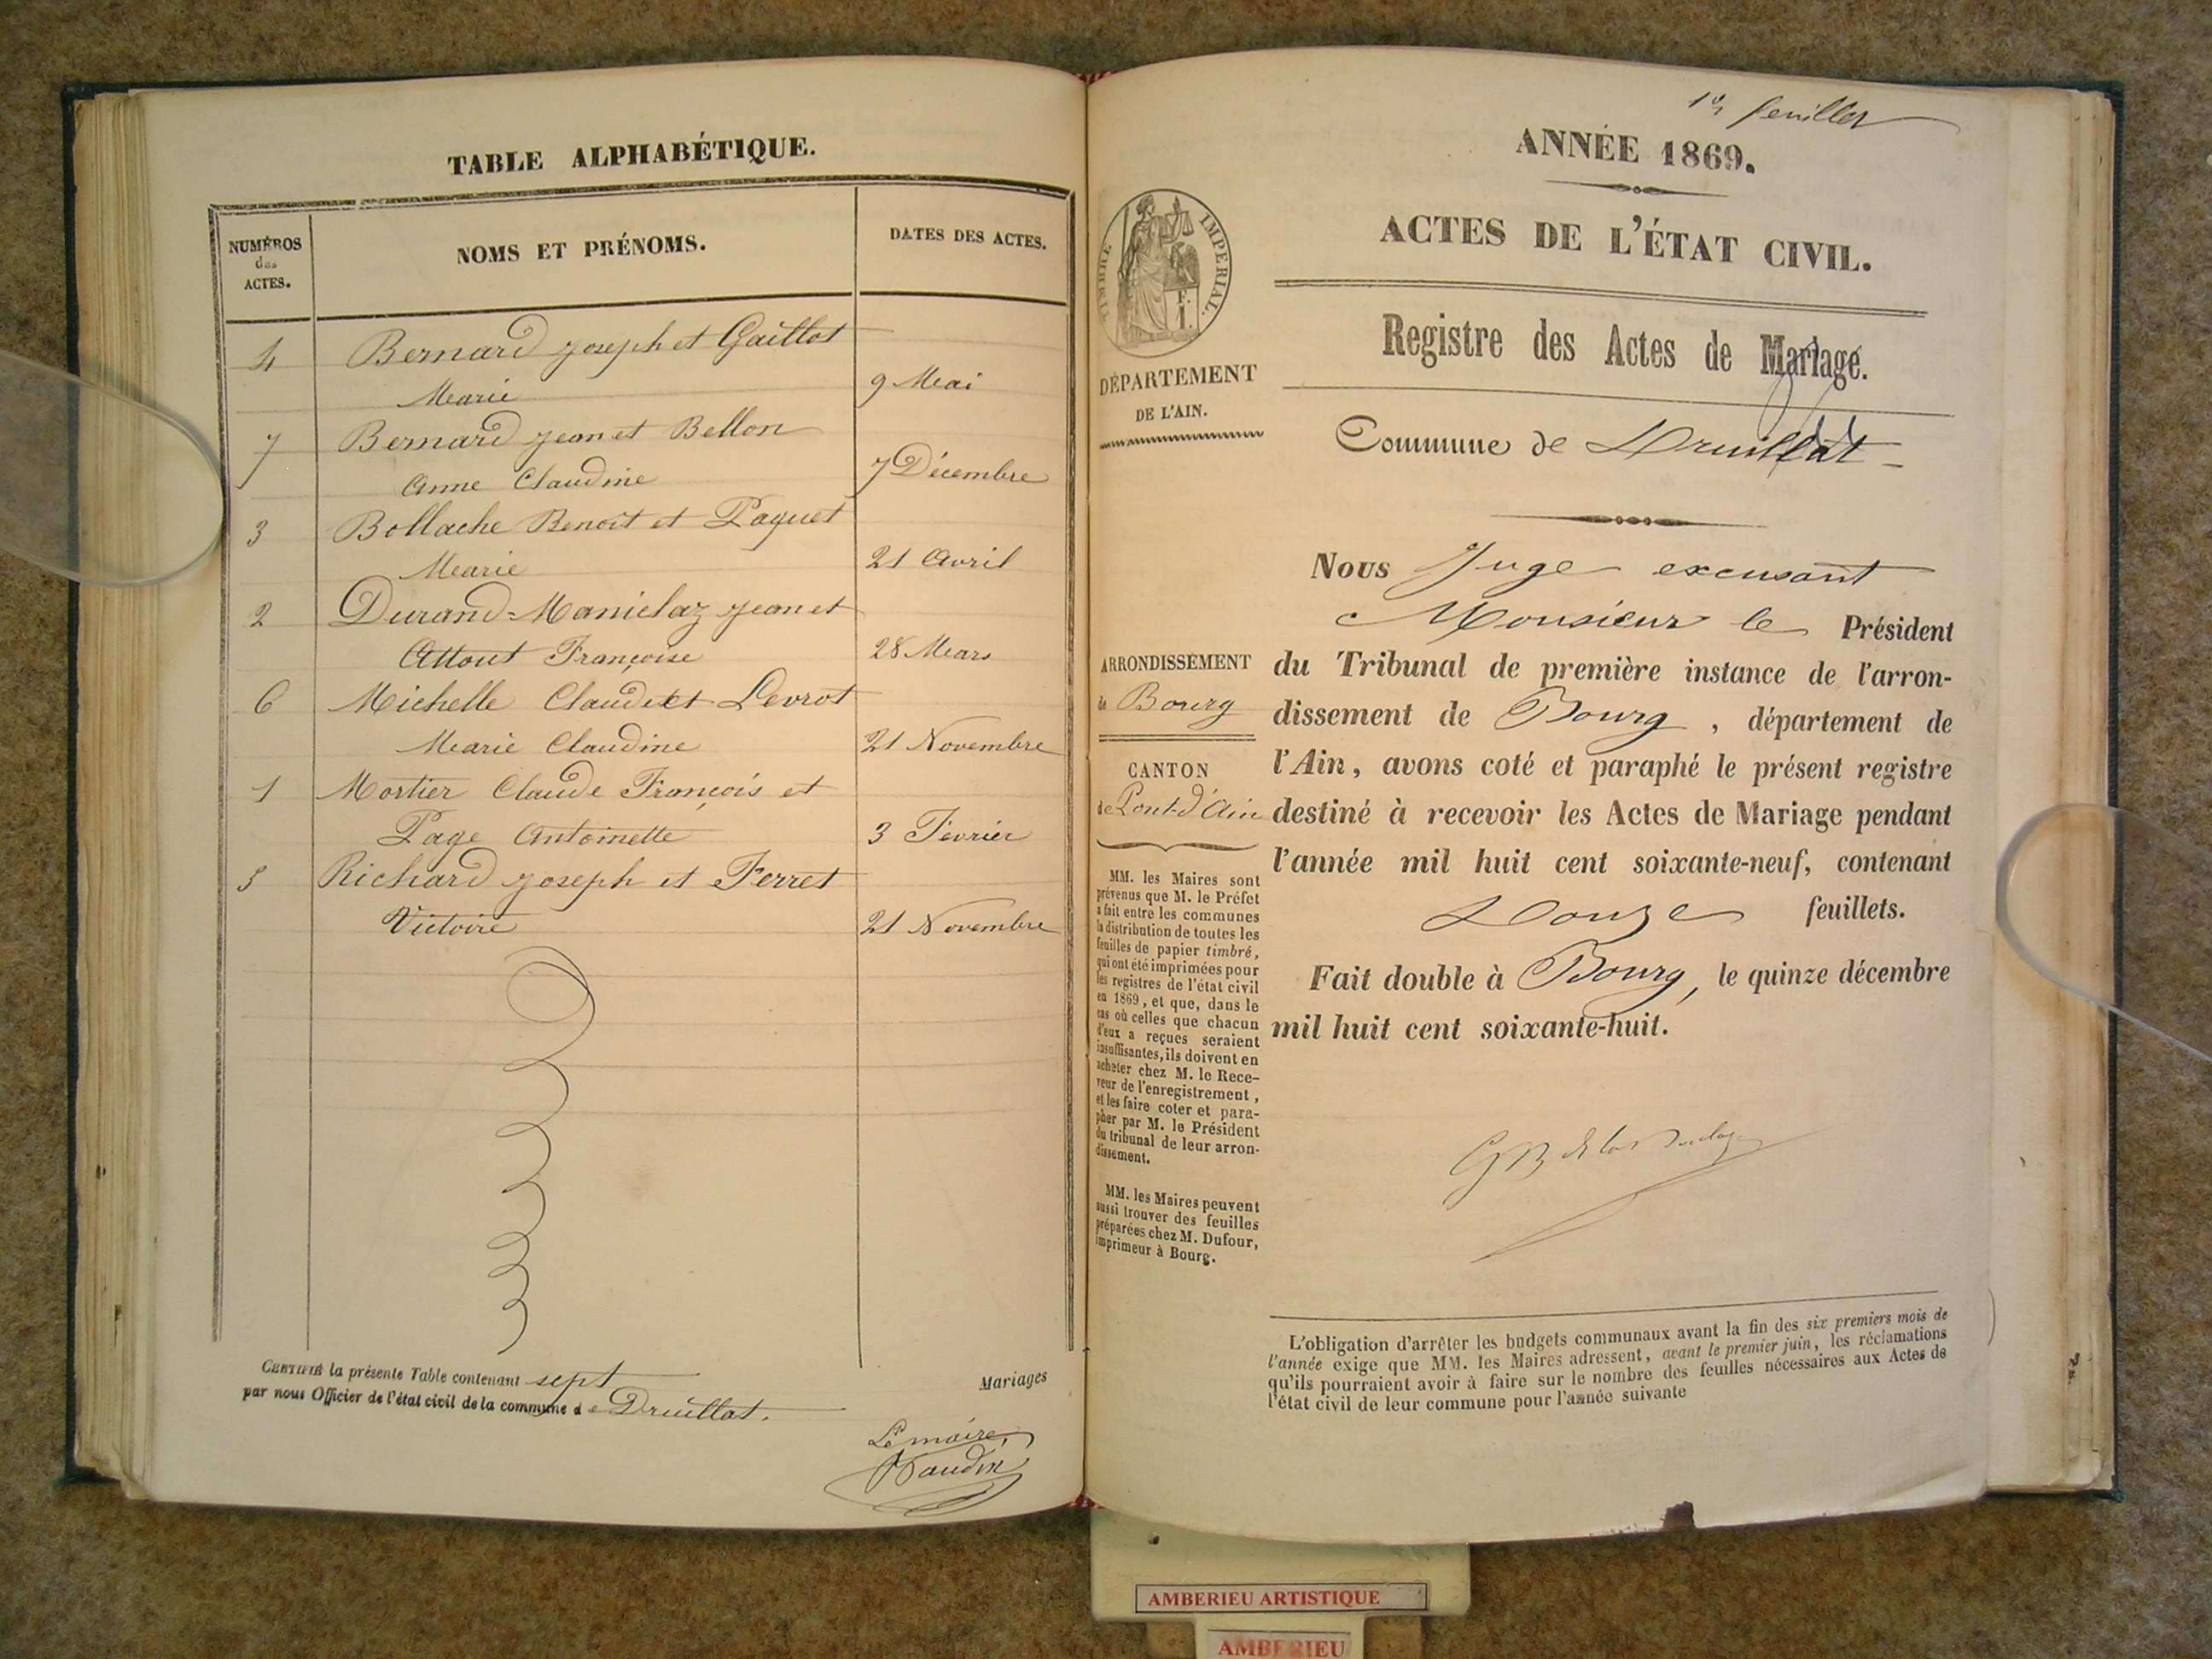 TABLE ALPHABÉTIQUE.
NUMÉROS
des
ACTES.
NOMS ET PRÉNOMS.
DATES DES ACTES.
4 Bernard Joseph et Gaillot
Marie 9 Mai
7 Bernard Jean et Bellon
Anne Claudine 7 Décembre
3 Bollache Benoit et Paquet
Marie 21 Avril
2 Durand-Maniclaz Jean et
Attout Françoise 28 Mars
6 Michelle Claude et Levrot
Marie Claudine 21 Novembre
1 Mortier Claude François et
Page Antoinette 3 Février
5 Richard Joseph et Ferret
Victoire 21 Novembre
CERTIFIÉ la présente Table contenant sept Mariages
par nous Officier de l'état civil de la commune de Druillat.
Le maire,
1er feuillet
ANNÉE 1869.
ACTES DE L'ÉTAT CIVIL.
Registre des Actes de Mariage.
Commune de Druillat
TIMBRE IMPÉRIAL.
DÉPARTEMENT
DE L'AIN.
ARRONDISSEMENT
de Bourg
CANTON
de Pont-d'Ain
MM. les Maires sont
prévenus que M. le Préfet
a fait entre les communes
la distribution de toutes les
feuilles de papier timbré,
qui ont été imprimées pour
les registres de l'état civil
en 1869, et que, dans le
cas où celles que chacun
d'eux a reçues seraient
insuffisantes, ils doivent en
acheter chez M. le Rece-
veur de l'enregistrement,
et les faire coter et para-
pher par M. le Président
du tribunal de leur arron-
dissement.
MM. les Maires peuvent
aussi trouver des feuilles
préparées chez M. Dufour,
imprimeur à Bourg.
Nous Juge excusant
Monsieur le Président
du Tribunal de première instance de l'arron-
dissement de Bourg, département de
l'Ain, avons coté et paraphé le présent registre
destiné à recevoir les Actes de Mariage pendant
l'année mil huit cent soixante-neuf, contenant
Douze feuillets.
Fait double à Bourg, le quinze décembre
mil huit cent soixante-huit.
L'obligation d'arrêter les budgets communaux avant la fin des six premiers mois de
l'année exige que MM. les Maires adressent, avant le premier juin, les réclamations
qu'ils pourraient avoir à faire sur le nombre des feuilles nécessaires aux Actes de
l'état civil de leur commune pour l'année suivante
AMBERIEU ARTISTIQUE
AMBERIEU